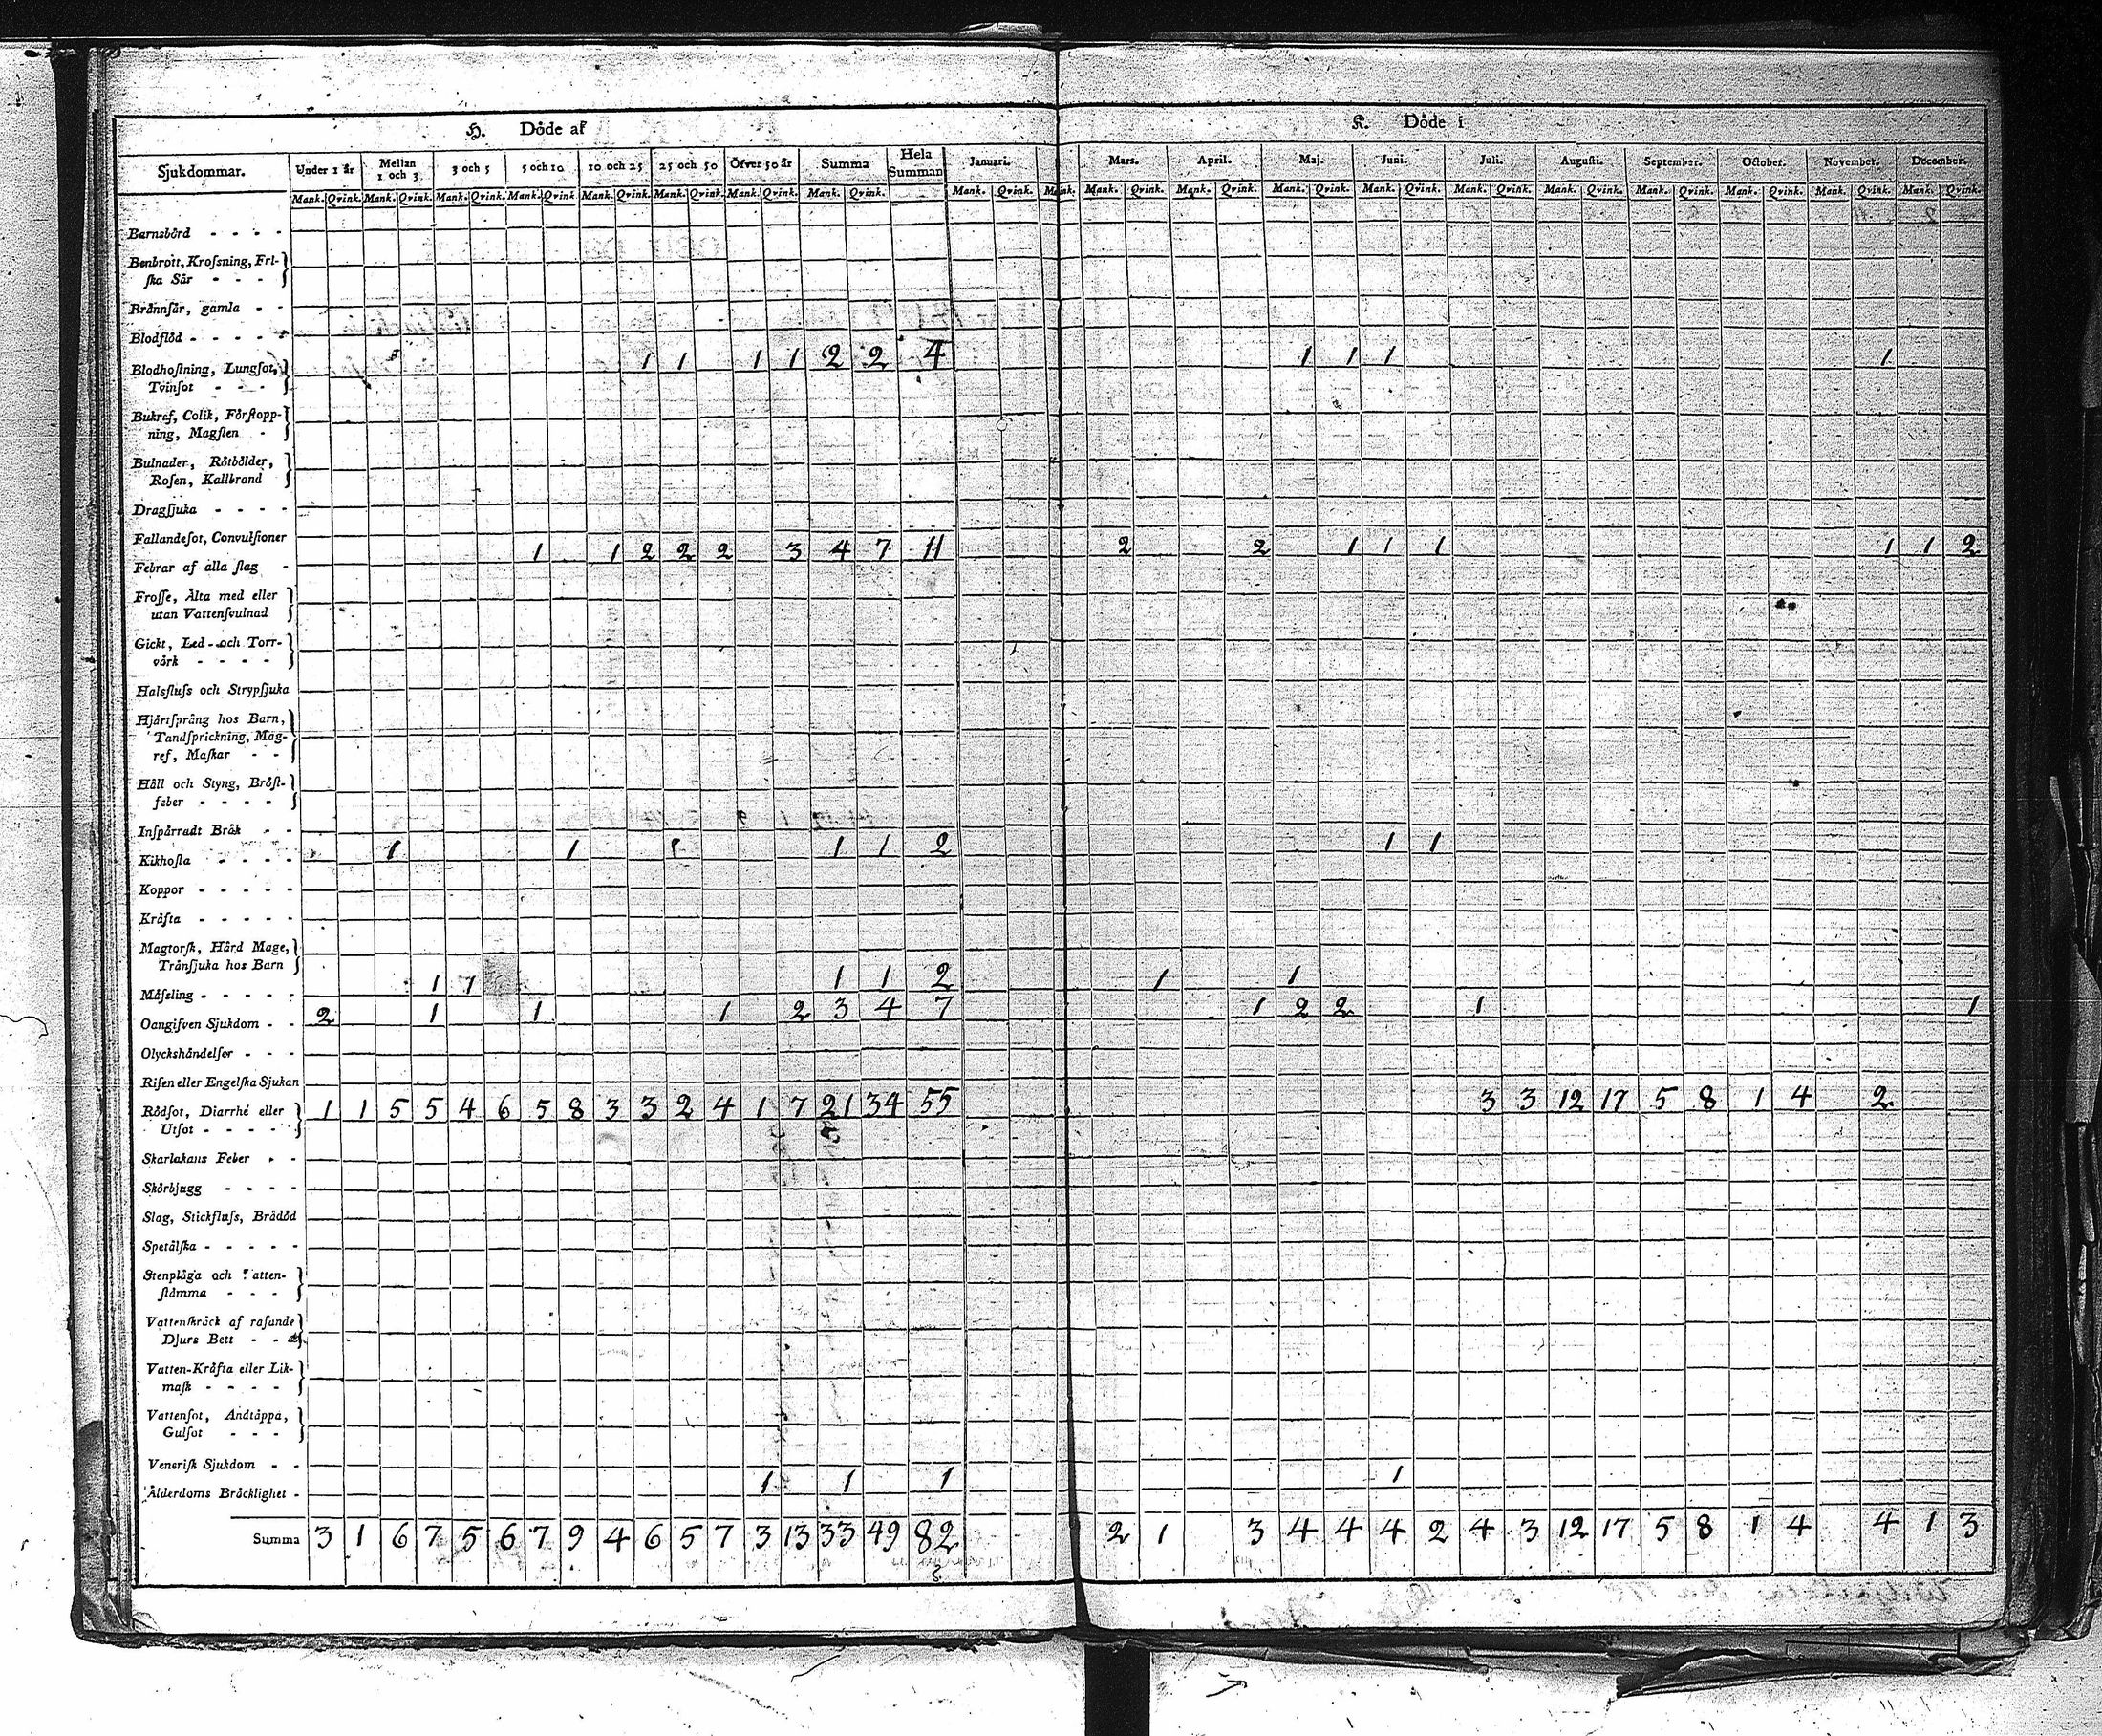 H. Döde af
K. Döde i
Sjukdommar. Under 1 år Mellan 1 och 3 3 och 5 5 och 10 10 och 25 25 och 50 Öfver 50 år Summa Hela Summan Januari. Mars. April. Maj. Juni. Juli. Augusti. September. October. November. December.
Mank. Qvink. Mank. Qvink. Mank. Qvink. Mank. Qvink. Mank. Qvink. Mank. Qvink. Mank. Qvink. Mank. Qvink. Mank. Qvink. Mank. Mank. Qvink. Mank. Qvink. Mank. Qvink. Mank. Qvink. Mank. Qvink. Mank. Qvink. Mank. Qvink. Mank. Qvink. Mank. Qvink. Mank. Qvink.
Barnsbörd - - - -
Benbrott, Krofsning, Fri-
ſka Sår - - -
Brännſår, gamla - -
Blodflöd - - - - -
Blodhoſtning, Lungſot, 1 1 1 1 2 2 4 1 1 1 1
Tvinſot - - -
Bukref, Colik, Förſtopp-
ning, Magſten -
Bulnader, Rötbölder,
Roſen, Kallbrand
Dragſjuka - - - -
Fallandeſot, Convulſioner
Febrar af alla ſlag - 1 1 2 2 2 3 4 7 11 2 2 1 1 1 1 1 2
Froſſe, Älta med eller
utan Vattenſvulnad
Gickt, Led- och Torr-
värk - - - -
Halsfluſs och Strypſjuka
Hjärtſprång hos Barn,
Tandſprickning, Mag-
ref, Maſkar - -
Håll och Styng, Bröſt-
feber - - - -
Inſpärradt Bråk - -
Kikhoſta - - - - 1 1 1 1 2 1 1
Koppor - - - - -
Kräfta - - - - -
Magtorſk, Hård Mage,
Trånſjuka hos Barn
Måſsling - - - - - 1 1 1 1 2 1 1
Oangifven Sjukdom - - 2 1 1 1 2 3 4 7 1 2 2 1 1
Olyckshändelſer - - -
Riſen eller Engelſka Sjukan
Rödſot, Diarrhé eller 1 1 5 5 4 6 5 8 3 3 2 4 1 7 21 34 55 3 3 12 17 5 8 1 4 2
Utſot - - - -
Skarlakans Feber - -
Skörbjugg - - - -
Slag, Stickfluſs, Brådöd
Spetälſka - - - - -
Stenplåga och Vatten-
ſtämma - - -
Vattenſkräck af raſande
Djurs Bett - -
Vatten-Kräfta eller Lik-
maſk - - - -
Vattenſot, Andtäppa,
Gulſot - - -
Veneriſk Sjukdom - -
Ålderdoms Bräcklighet - 1 1 1 1
Summa 3 1 6 7 5 6 7 9 4 6 5 7 3 13 33 49 82 2 1 3 4 4 4 2 4 3 12 17 5 8 1 4 4 1 3